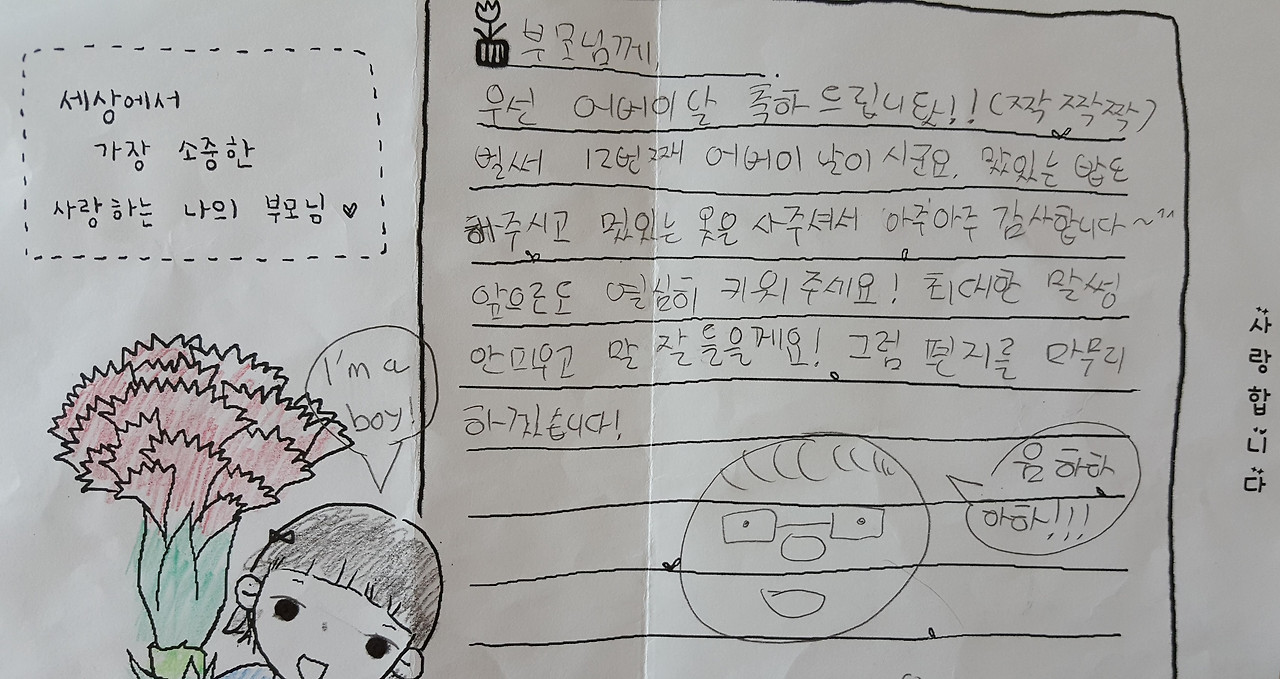 세상에서
가장 소중한
사랑하는 나의 부모님 ♥
부모님께,
우선 어버이달 축하드립니닷!! (짝짝짝)
벌써 12번째 어버이날이시군요. 맜있는 밥도
해주시고 멌있는 옷을 사주셔서 아주아주 감사합니다~"
앞으로도 열심히 키워주세요! 최대한 말썽
안피우고 말 잘 들을게요! 그럼 편지를 마무리
하겠습니다!
I'm a
boy!
음하하
하하!!!
사랑합니다